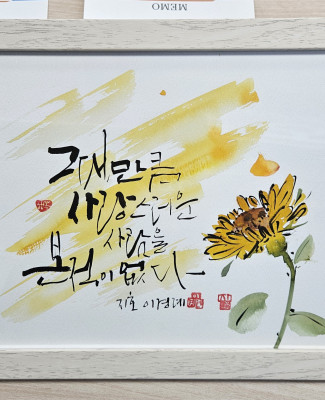 MEMO
그대만큼
사랑스러운
사람을
본 적이 없다
지호 이경례